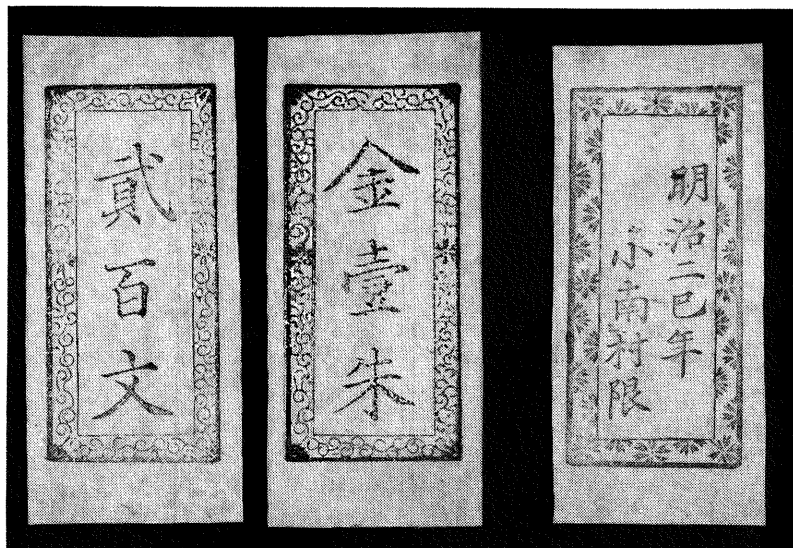 貳百文
金壹朱
明治二巳年
小南村限